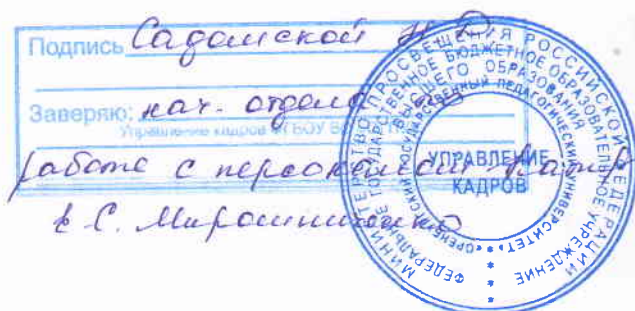 Подпись Садомской Н. В.
Заверяю: нач. отдела по
Управление кадров ФГБОУ ВО
работе с персоналом
Е.С. Мирошниченко
МИНИСТЕРСТВО ПРОСВЕЩЕНИЯ РОССИЙСКОЙ ФЕДЕРАЦИИ
ФЕДЕРАЛЬНОЕ ГОСУДАРСТВЕННОЕ БЮДЖЕТНОЕ ОБРАЗОВАТЕЛЬНОЕ УЧРЕЖДЕНИЕ
ВЫСШЕГО ОБРАЗОВАНИЯ
«ОРЕНБУРГСКИЙ ГОСУДАРСТВЕННЫЙ ПЕДАГОГИЧЕСКИЙ УНИВЕРСИТЕТ»
УПРАВЛЕНИЕ
КАДРОВ